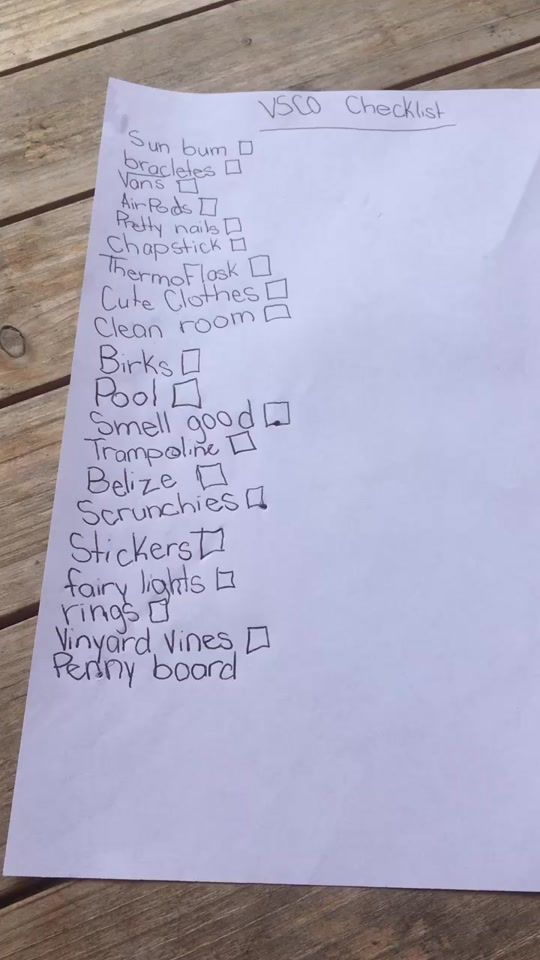 VSCO Checklist
Sun bum
bracletes
Vans
AirPods
Pretty nails
Chapstick
ThermoFlask
Cute Clothes
Clean room
Birks
Pool
Smell good
Trampoline
Belize
Scrunchies
Stickers
fairy lights
rings
Vinyard Vines
Penny board